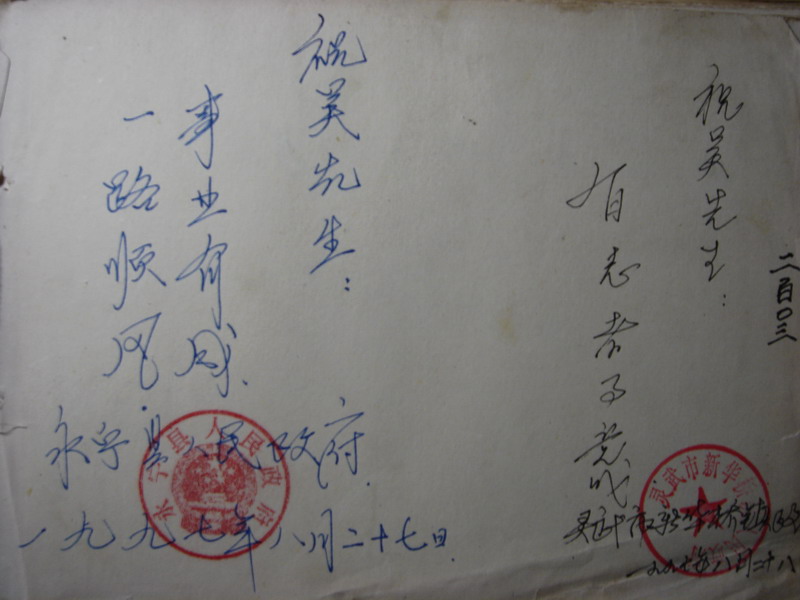 二百〇三
祝吴先生：
有志者事竟成
一九九七年八月二十八
祝吴先生：
事业有成
一路顺风
永宁县人民政府
一九九七年八月二十七日
永宁县人民政府
灵武市新华